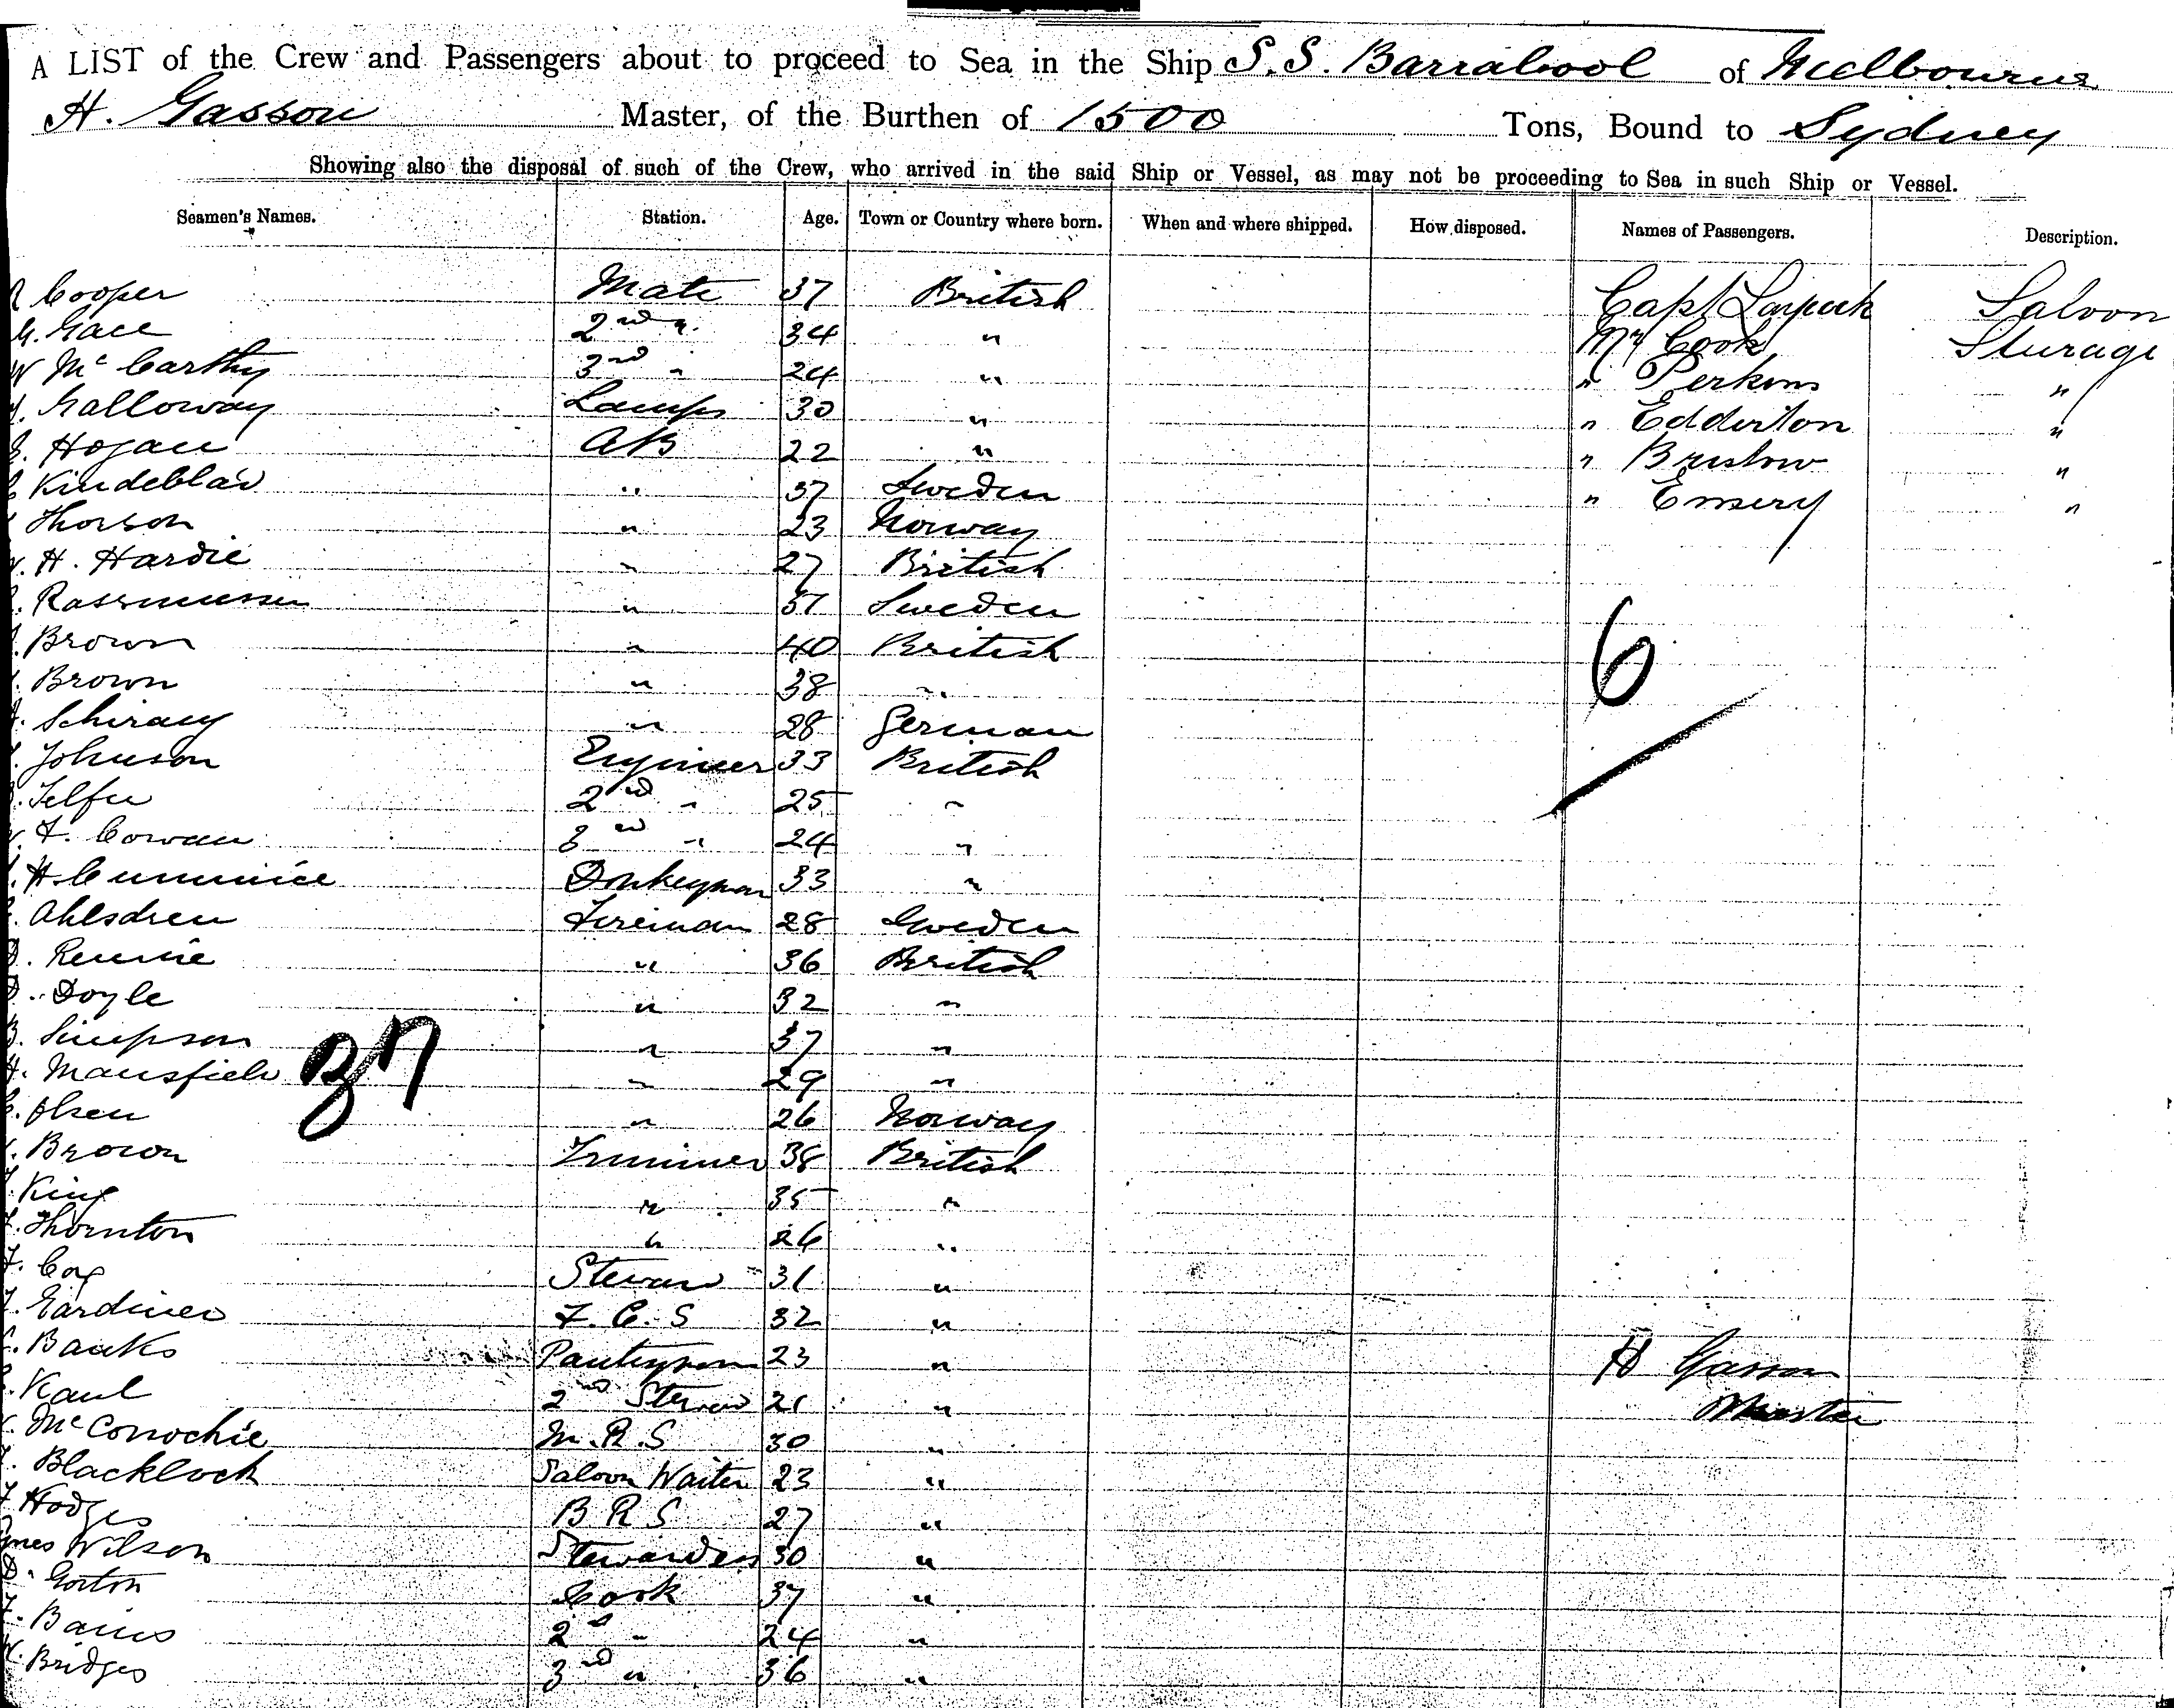 A LIST of the Crew and Passengers about to proceed to Sea in the Ship S.S. Barrabool of Melbourne
H. Gasson Master, of the Burthen of 1500 Tons, Bound to Sydney
Showing also the disposal of such of the Crew, who arrived in the said Ship or Vessel, as may not be proceeding to Sea in such Ship or Vessel.
Seamen's Names. Station. Age. Town or Country where born. When and where shipped. How disposed. Names of Passengers. Description.
Cooper Mate 37 British Capt Saloon
G. 2nd " 34 " Mr Cook Sturage
W McCarthy 3rd " 24 " " Perkins "
Galloway Lamps 30 " " Edderton "
Hogan AB 22 " " Bristow "
Kindeblad " 37 Sweden " Emery "
Thorson " 23 Norway
W. H. Hardie " 27 British
Rassmussen " Sweden
Brown " 40 British
Brown " 38 "
" 28 German
6
Johnson Engineer 33 British
Telfer 2nd " 25 "
W. F. Cowan 3rd " 24 "
H. Cumminée Donkeyman 33 "
Ahlsdren Fireman 28 Sweden
D. Rennie " 36 British
D. Doyle " 32 "
B. Simpson " 37 "
H. Mansfield " 29 "
37
C. Olsen " 26 Norway
Brown Trimmer 38 British
King " 35 "
Thornton " 26 "
F. Cox Steward 31 "
Gardiner F. C. S 32 "
Banks Pantryman 23 "
H Gasson
Kaul 2nd Steward 21 "
Master
McConochie M.R.S 30 "
Blacklock Saloon Waiter 23 "
F Hodges B R S 27 "
Wilson Stewardess 30 "
D. Gorton Cook 37 "
F. Bains 2d " 24 "
W. Bridges 3rd " 36 "